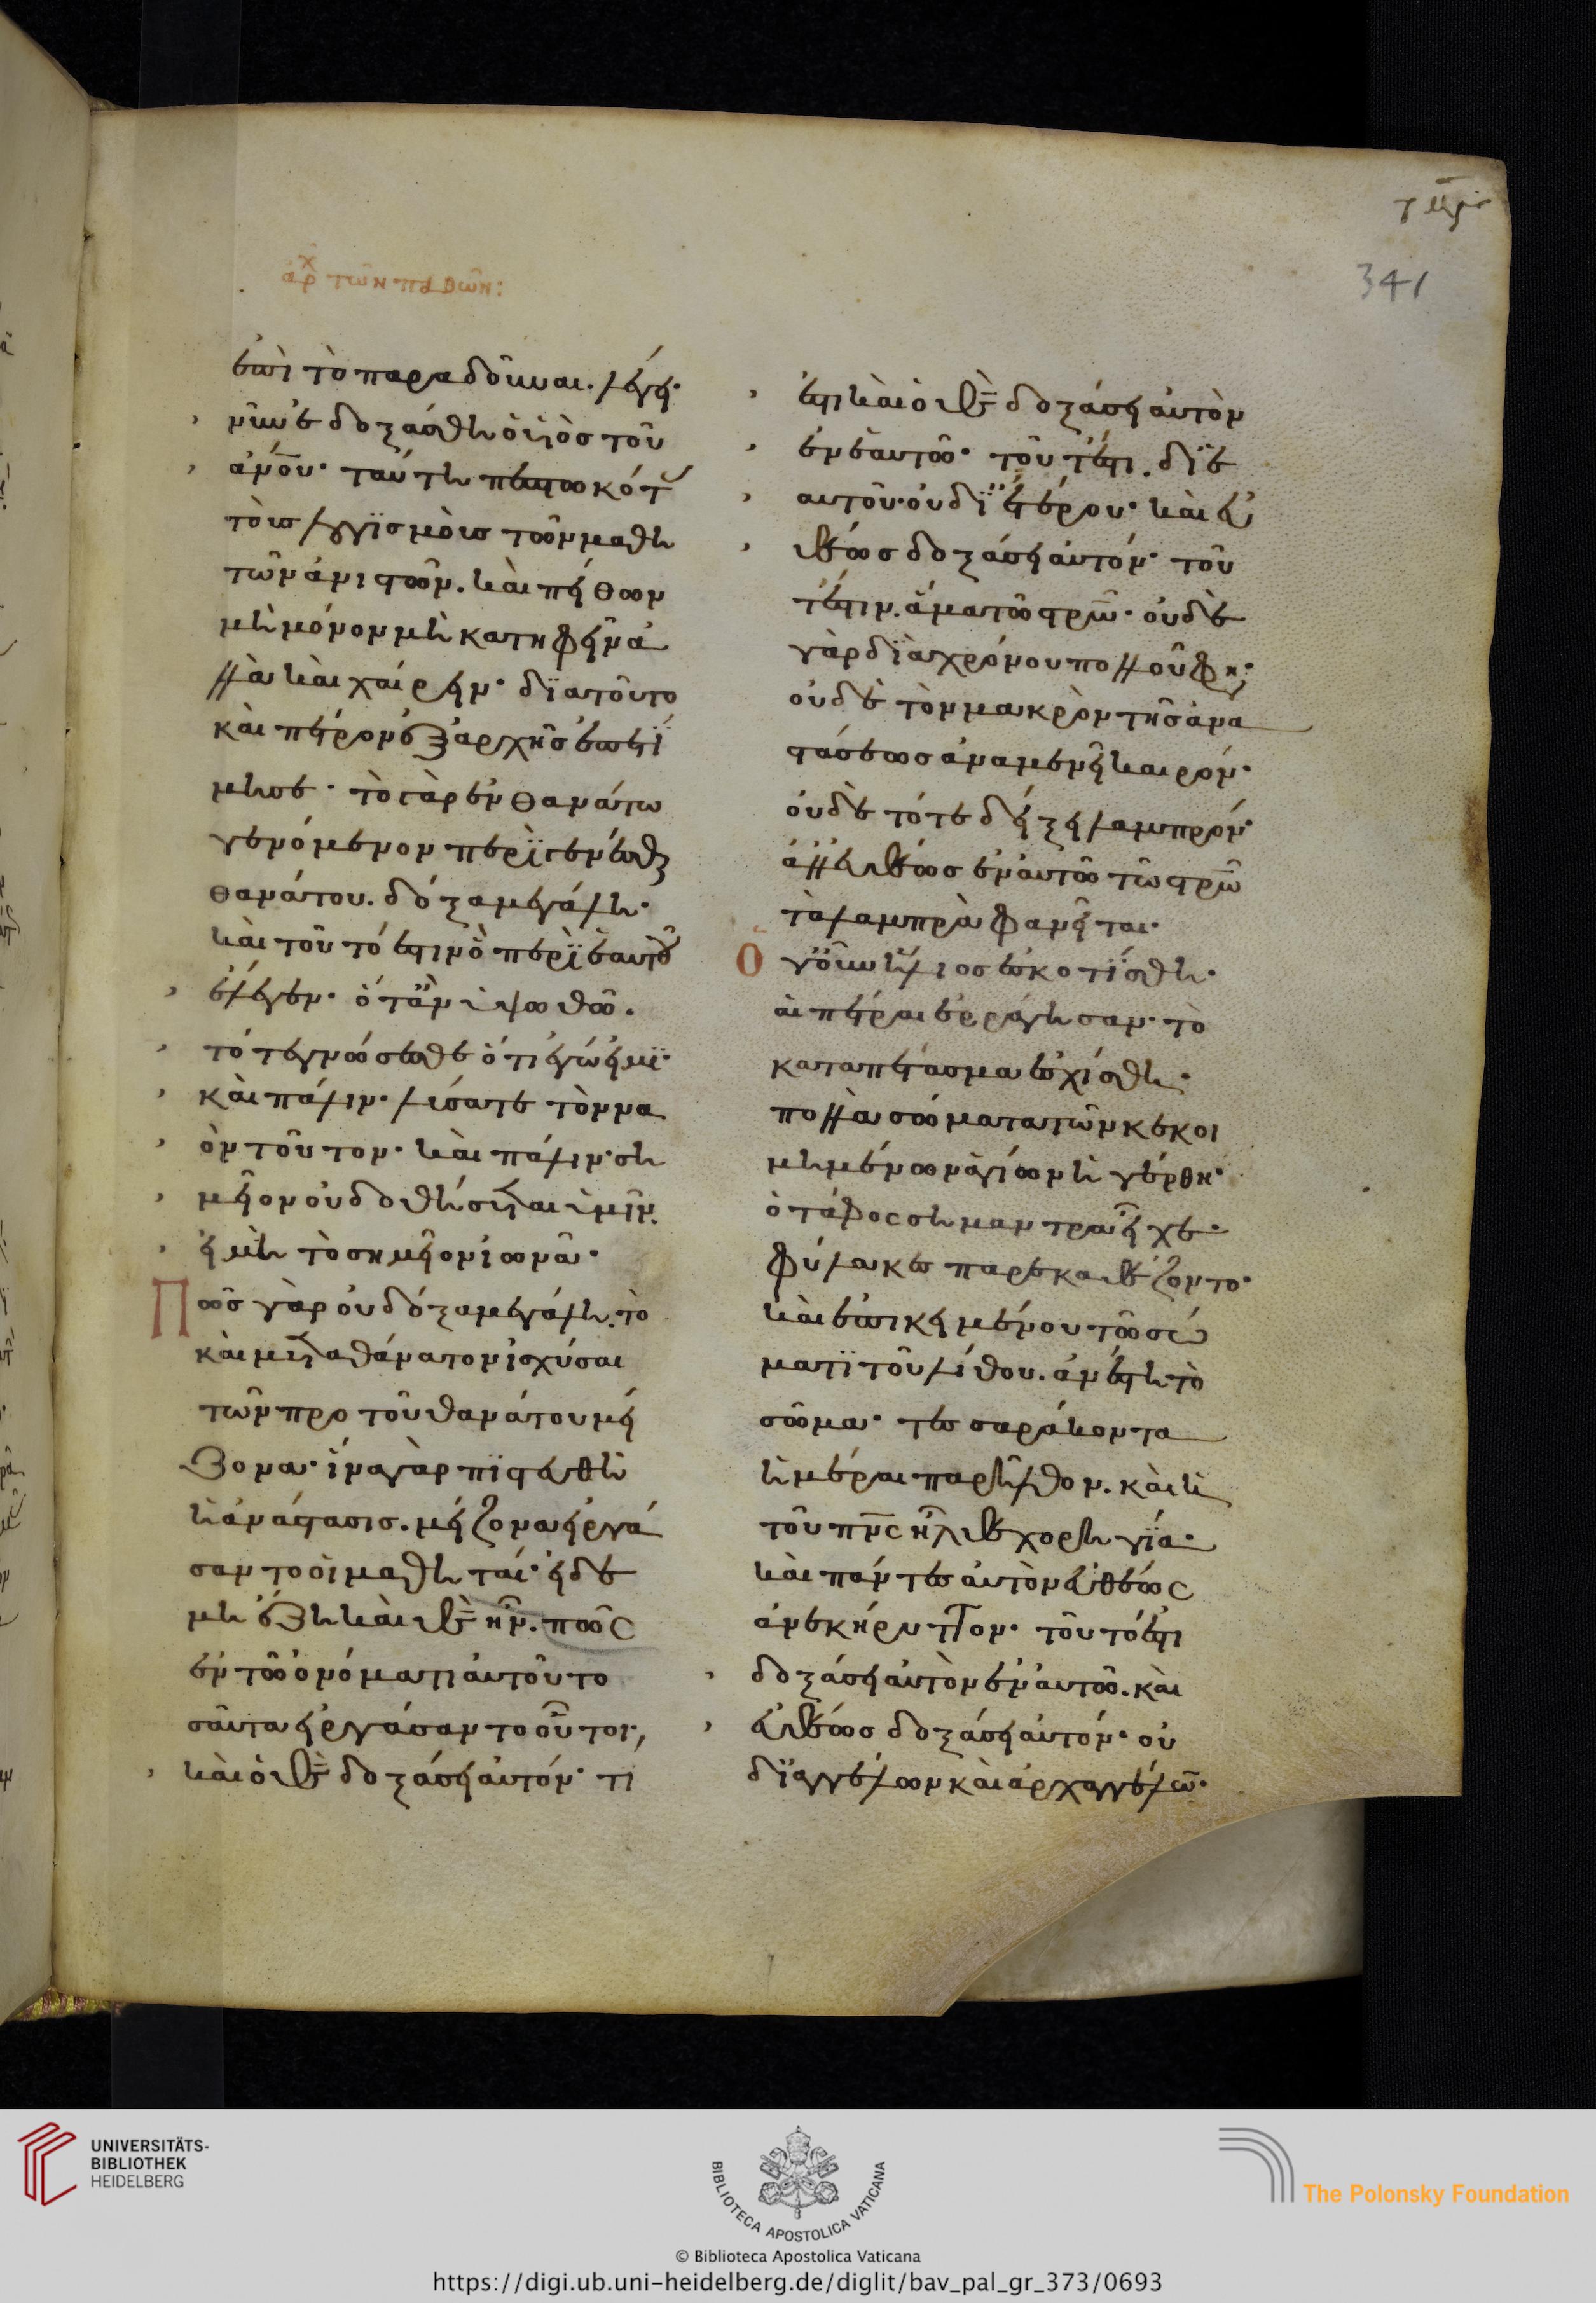 ἀρχ τῶν παθῶν:
341
ἐπὶ τὸ παραδοῦναι. λέγει·
νῦν ἐδοξάσθη ὁ υἱὸς τοῦ
ἀνου· ταύτη πεπτωκότ
τοὺς λογϊσμοὺς τῶν μαθη
τῶν ἀνιστῶν. καὶ πείθων
μὴ μόνον μὴ κατηφεῖν ἀλ
λὰ καὶ χαίρειν· δϊατοῦτο
καὶ πέτρον ἐξαρχῆς ἐπετί
μησε· τὸ γὰρ ἐν θανάτω
γενόμενον περϊγενέσθαι
θανάτου. δόξα μεγάλη·
καὶ τοῦτό ἐστιν ὃ περϊ ἑαυτοῦ
ἔλεγεν· ὅτἂν ὑψωθῶ.
τότε γνώσεσθε ὅτι ἐγώ εἰμϊ·
καὶ πάλιν· λύσατε τὸν να
ὸν τοῦτον· καὶ πάλιν· ση
μεῖον οὐ δοθήσεται ὑμῖν.
εἰ μὴ τὸ σημεῖον ἰωνᾶ·
Πῶς γὰρ οὐ δόξα μεγάλη. τὸ
καὶ μετὰ θάνατον ἰσχύσαι
τῶν προ τοῦ θανάτου μεί
ζονα· ἵνα γὰρ πϊστευθῆ
ἡ ἀνάστασις. μείζονα εἰργά
σαντο οἱ μαθηταί· εἰ δὲ
μὴ ἔζη καὶ θς ἦν. πῶς
ἐν τῶ ὀνόματι αὐτοῦ το
σαῦτα εἰργάσαντο οὗτοι,
καὶ ὁ θς δοξάσει αὐτόν· τί
ἐστι καὶ ὁ θς δοξάσει αὐτὸν
ἐν ἑαυτῶ· τοῦτέστι. δϊ ἑ
αυτοῦ· οὐ δϊ ἑτέρου· καὶ εὐ
θέως δοξάσει αὐτόν· τοῦ
τέστιν. ἅμα τῶ στρω· οὐδὲ
γὰρ δϊὰ χρόνου πολλοῦ φη·
οὐδὲ τὸν μακρὸν τῆς ἀνα
στάσεως ἀναμένει καιρόν·
οὐδὲ τότε δείξει λαμπρόν·
ἀλλ εὐθέως ἐν αὐτῶ τῶ στρω
τὰ λαμπρὰ φανεῖται·
Ὁ γοῦν ἥλιος ἐσκοτϊσθη·
αἱ πέτραι ἐρράγησαν· τὸ
καταπέτασμα ἐσχίσθη·
πολλὰ σώματα τῶν κεκοι
μημένων ἁγίων ἠγέρθη·
ὁ τάφος σήμαντρα εἶχε·
φύλακες παρεκαθέζοντο·
καὶ ἐπικειμένου τῶ σώ
ματϊ τοῦ λίθου. ἀνέστη τὸ
σῶμα· τεσσαράκοντα
ἡμέραι παρῆλθον. καὶ ἡ
τοῦ πνς ἦλθε χορηγϊα·
καὶ πάντες αὐτὸν εὐθέως
ἀνεκήρυττον· τοῦτό ἐστι
δοξάσει αὐτὸν ἐν αὐτῶ. καὶ
εὐθέως δοξάσει αὐτόν· οὐ
δϊ ἀγγέλων καὶ ἀρχαγγέλω·
UNIVERSITÄTS-
BIBLIOTHEK
HEIDELBERG
BIBLIOTECA APOSTOLICA VATICANA
The Polonsky Foundation
© Biblioteca Apostolica Vaticana
https://digi.ub.uni-heidelberg.de/diglit/bav_pal_gr_373/0693